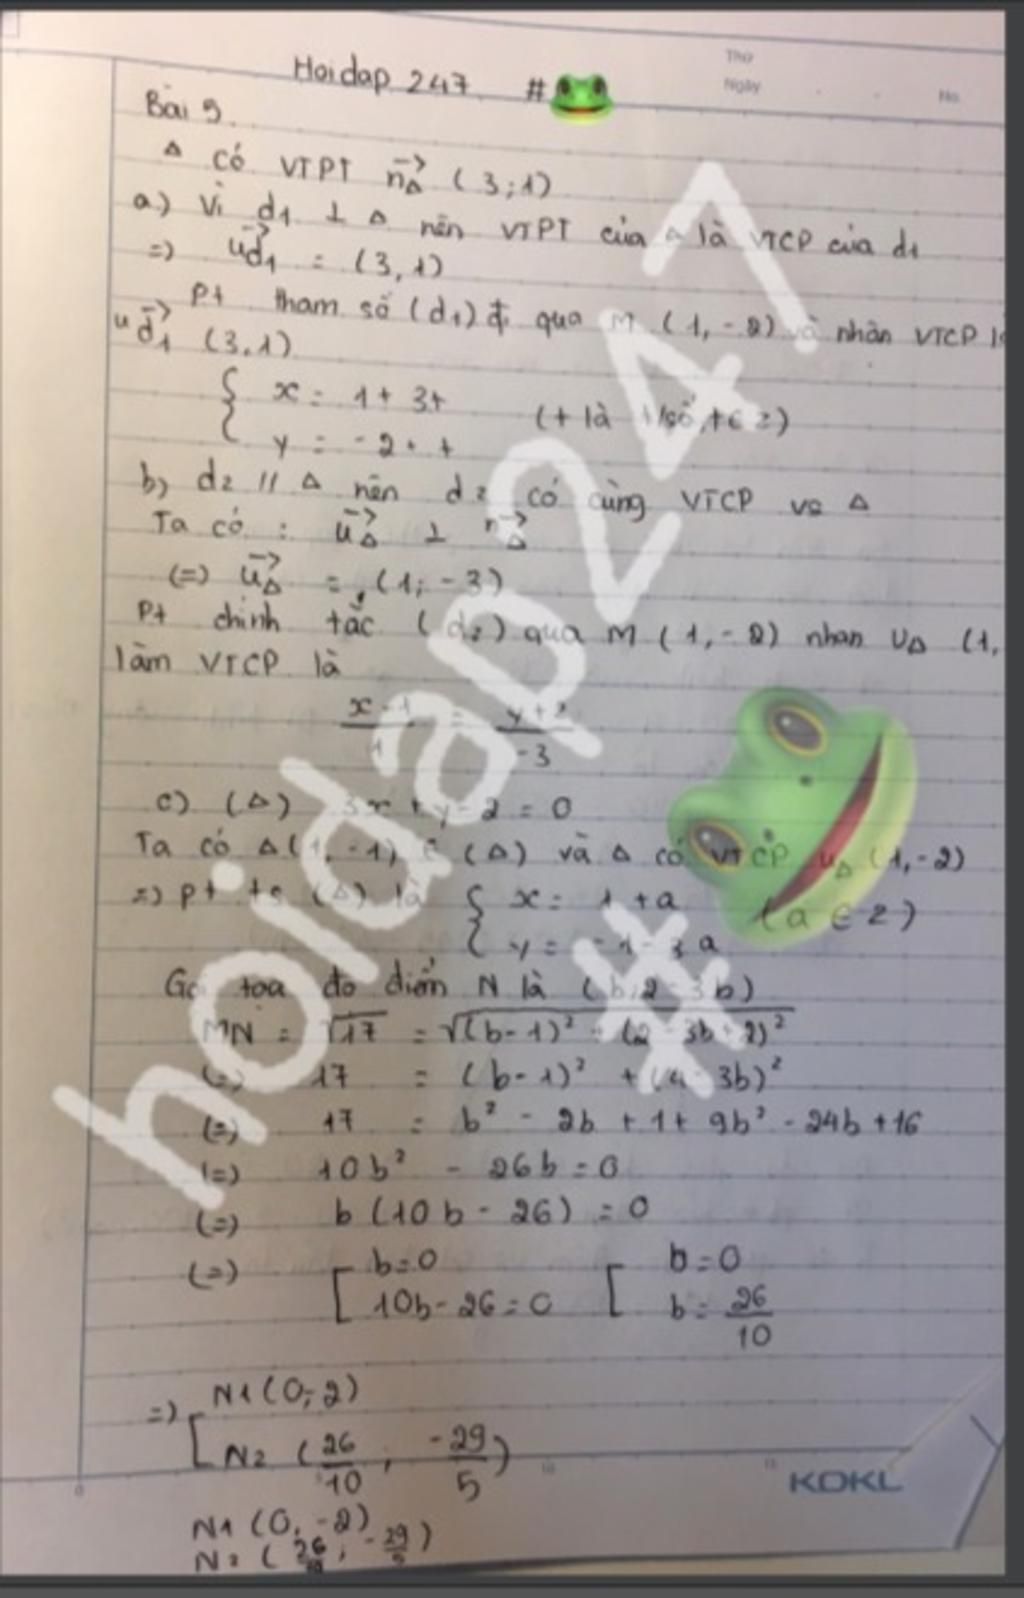 Hoidap 247 #
Thứ
Ngày
No.
Bài 9
Δ có VTPT n⃗Δ (3;1)
a) Vì d1 ⊥ Δ nên VTPT của Δ là VTCP của d1
=) u⃗d1 = (3,1)
Pt tham số (d1) đi qua M (1,-2) và nhân VTCP là
u⃗d1 (3,1)
{ x = 1 + 3t
(t là t/số, t ∈ z)
y = -2 + t
b) d2 // Δ nên d2 có cùng VTCP vs Δ
Ta có : u⃗Δ ⊥ n⃗Δ
(=) u⃗Δ = (1; -3)
Pt chính tắc (d2) qua M (1,-2) nhan uΔ (1,
làm VTCP là
x-1/1 = y+2/-3
c) (Δ) 3x + y - 2 = 0
Ta có Δ(1,-1) ∈ (Δ) và Δ có VTCP uΔ (1,-2)
=) pt ts (Δ) là { x = 1 + a
(a ∈ z)
y = -1 - 3a
Gọi tọa độ điểm N là (b,2-3b)
MN = √17 = √(b-1)² + (2-3b+2)²
(=) 17 = (b-1)² + (4-3b)²
(=) 17 = b² - 2b + 1 + 9b² - 24b + 16
(=) 10b² - 26b = 0
(=) b (10b - 26) = 0
(=) [ b=0 [ b=0
10b-26=0 b = 26/10
=) [ N1 (0; 2)
N2 (26/10 , -29/5)
KOKU
N1 (0, -2)
N2 (26/10 ; -29/5)
hoidap247
#